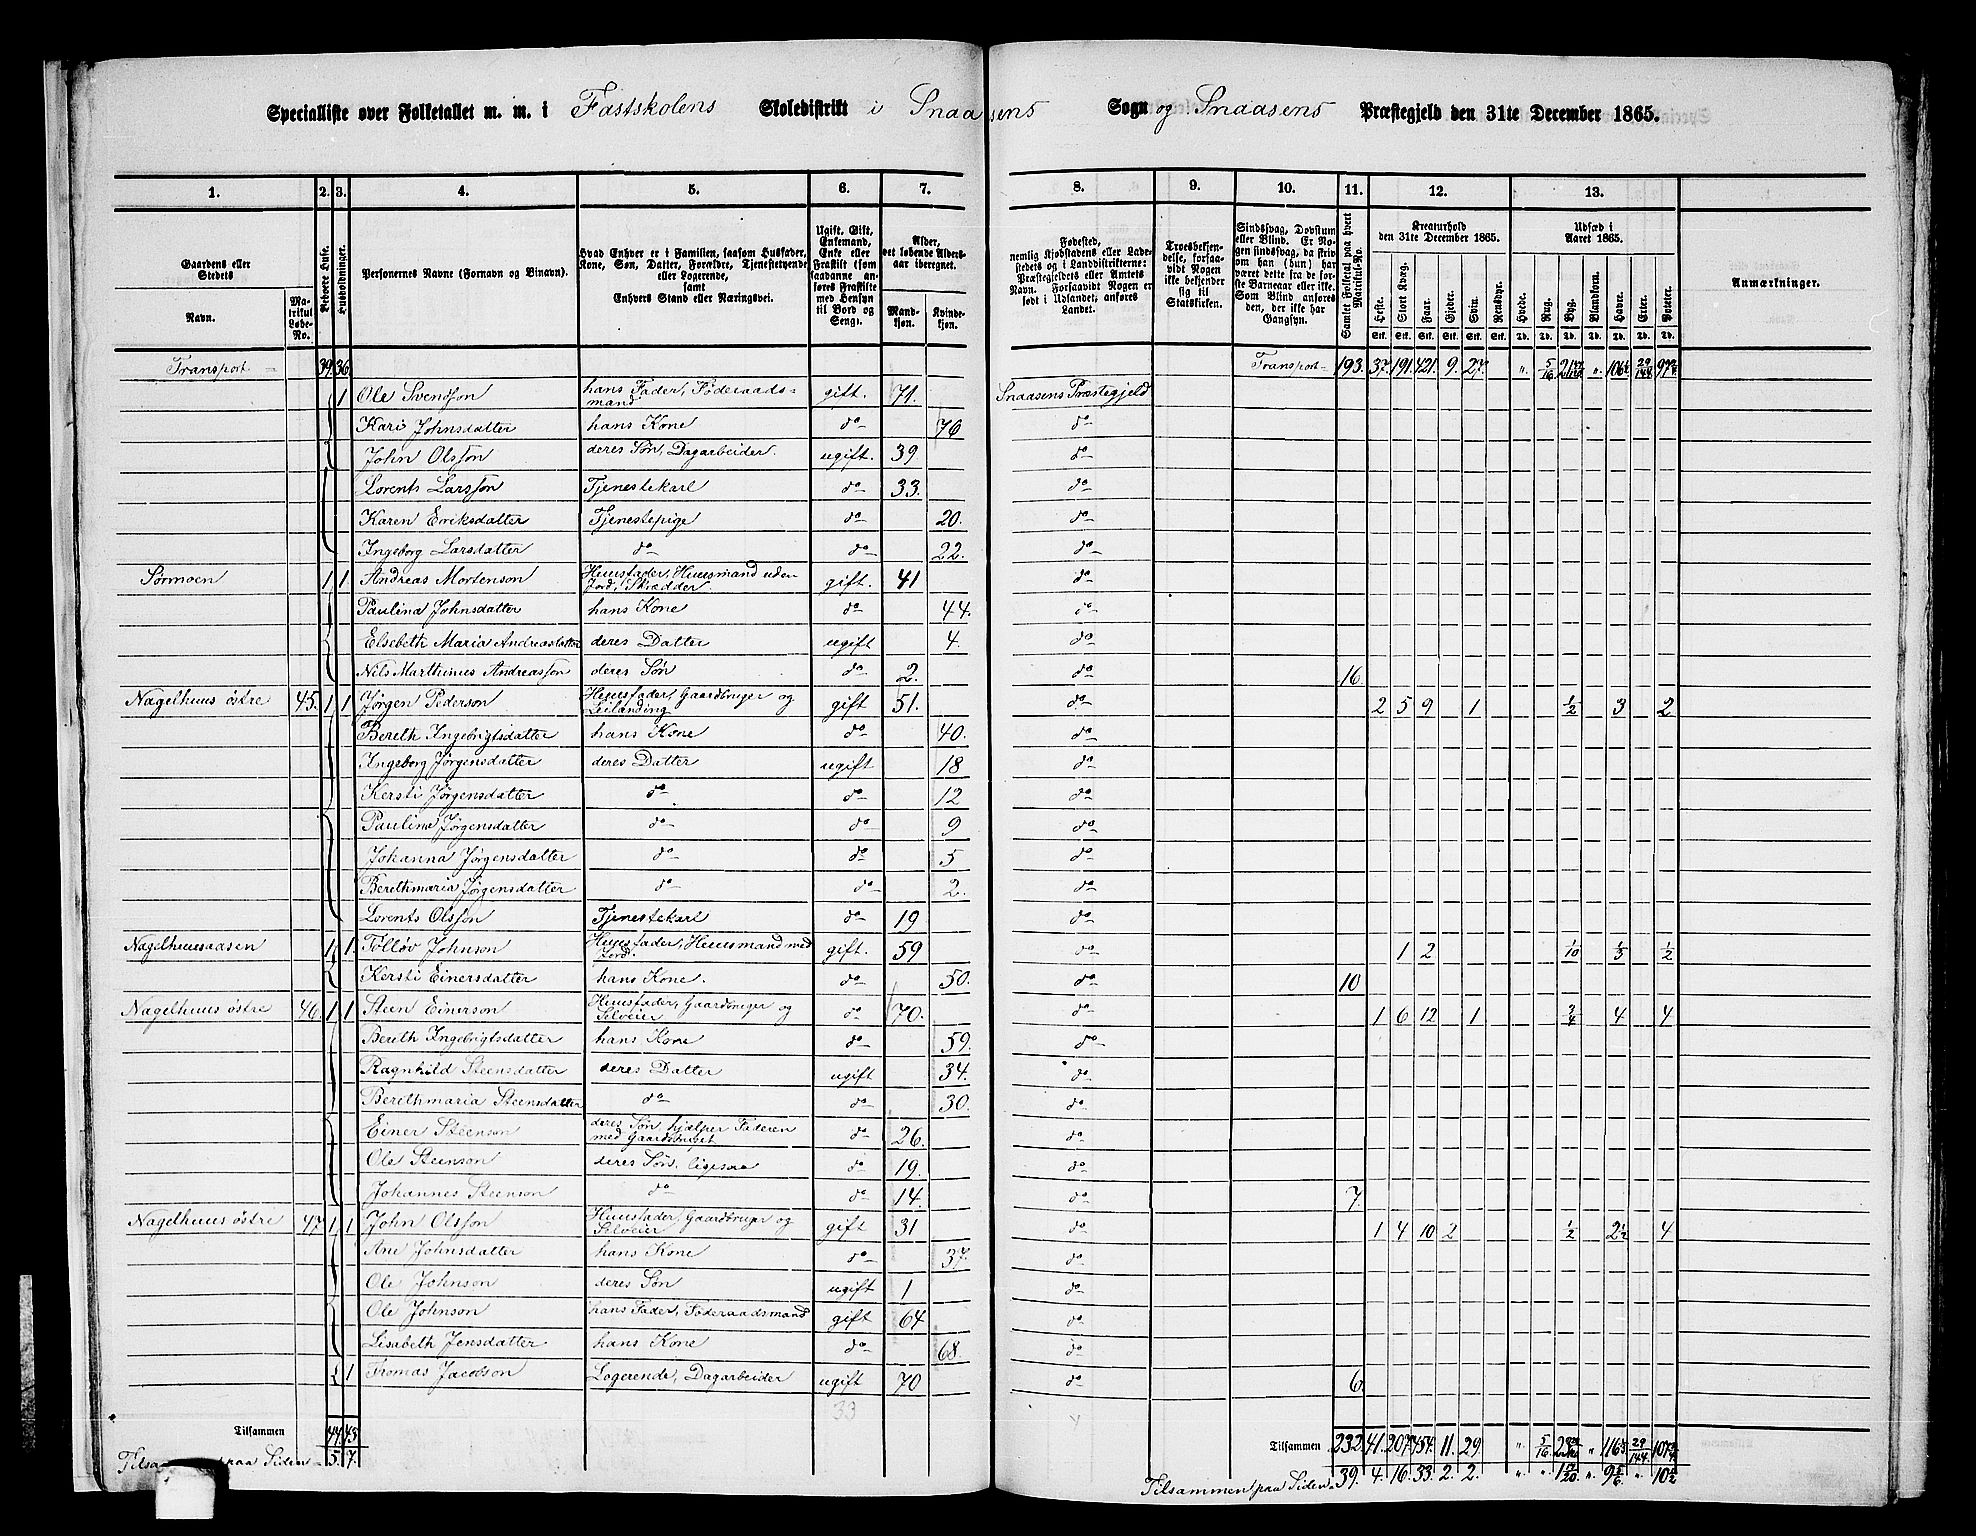 Specialliste over Folketallet m. m. i Fastskolens Skoledistrikt i Snaasens Sogn og Snaasens Præstegjeld den 31te December 1865.
1. 2. 3. 4. 5. 6. 7. 8. 9. 10. 11. 12. 13.
Gaardens eller Stedets Navn. Matrikul Løbe-No. Beboede Huse. Husholdninger. Personernes Navne (Fornavn og Binavn). Hvad Enhver er i Familien, saasom Husfader, Kone, Søn, Datter, Forældre, Tjenestetyende eller Logerende, samt Enhvers Stand eller Næringsvei. Ugift, Gift, Enkemand, Enke eller Fraskilt (som saadanne anføres Fraskilte med Hensyn til Bord og Seng). Alder, det løbende Aldersaar iberegnet. Mandkjøn. Kvindekjøn.
Fødested, nemlig Kjøbstadens eller Ladestedets og i Landdistrikterne: Præstegjeldets eller Amtets Navn. Forsaavidt Nogen er født i Udlandet, anføres Landet. Troesbekjendelse, forsaavidt Nogen ikke bekjender sig til Statskirken. Sindssvag, Døvstum eller Blind. Er Nogen sindssvag, da skrives om han (hun) har været dette fra de første Barneaar eller ikke. Som Blind anføres den, der ikke har Gangsyn. Samlet Folketal paa hvert Matrikul-No. Kreaturhold den 31te December 1865. Heste. Stort Kvæg. Faar. Gjeder. Svin. Rensdyr. Udsæd i Aaret 1865. Hvede. Rug. Byg. Blandkorn. Havre. Erter. Poteter. Anmærkninger.
Transport 39. 36 Transport 193. 37. 191. 421. 9. 27. " 5/16 "
1 Ole Svendsen hans Fader, Føderaadsmand gift. 71. Snaasens Præstegjeld
Kari Johnsdatter hans Kone do 76 do
John Olsson deres Søn, Dagarbeider. ugift. 39 do
Lorents Larsson Tjenestekarl do 33. do
Karen Eriksdatter Tjenestepige do 20. do
Ingeborg Larsdatter do do 22. do
Sørmoen 1 1 Andreas Mortenson Huusfader, Huusmand uden Jord, Skrædder. gift. 41 do
Paulina Johnsdatter hans Kone do 44. do
Elsebeth Maria Andreasdatter deres Datter ugift 4. do
Nils Marthinus Andreasson deres Søn do 2. do 16
Nagelhuus østre 45. 1 1 Jørgen Pederson Huusfader, Gaardbruger og Leilænding gift 51. do 2 5 9 1 1/2 3 2
Bereth Ingebrigtsdatter hans Kone do 40. do
Ingeborg Jørgensdatter deres Datter ugift 18 do
Kersti Jørgensdatter do do 12 do
Paulina Jørgensdatter do do 9 do
Johanna Jørgensdatter do do 5 do
Berethmaria Jørgensdatter do do 2. do
Lorents Olsson Tjenestekarl do 19 do
Nagelhuusaasen 1 1. Folløv Johnson Huusfader, Huusmand med Jord. gift. 59 do 1 2 1/10 1/3 1/2
Kersti Einersdatter hans Kone. do 50. do 10
Nagelhuus østre 46 1 1 Steen Einerson Huusfader, Gaardbruger og Selveier do 70. do 1 6 12 1 3/4 4 4
Bereth Ingebrigtsdatter hans Kone do 59. do
Ragnhild Steensdatter deres Datter ugift 34. do
Berethmaria Steensdatter do do 30. do
Einer Steenson deres Søn, hjælper Faderen med Gaardbruget do 26. do
Ole Steenson deres Søn, ligesaa do 19. do
Johannes Steenson do do 14. do 7.
Nagelhuus østre 47 1 1 John Olsson Huusfader, Gaardbruger og Selveier gift 31 do 1 4 10 2 1/2 2 1/2 4
Ane Johnsdatter hans Kone do 37. do
Ole Johnson deres Søn ugift 1 do
Ole Johnson hans Fader, Føderaadsmand gift 64 do
Lisabeth Jensdatter hans Kone do 68. do
1 Thomas Jacobson Logerende, Dagarbeider ugift 70 do 6.
33
Tilsammen 44. 43. Tilsammen 232 41. 207. 454. 11. 29. " 5/16 " 29/144
Tilsammen paa Siden 5. 7. Tilsammen paa Siden 39. 4. 16. 33. 2. 2. " " " 9 5/6 " 10 1/2